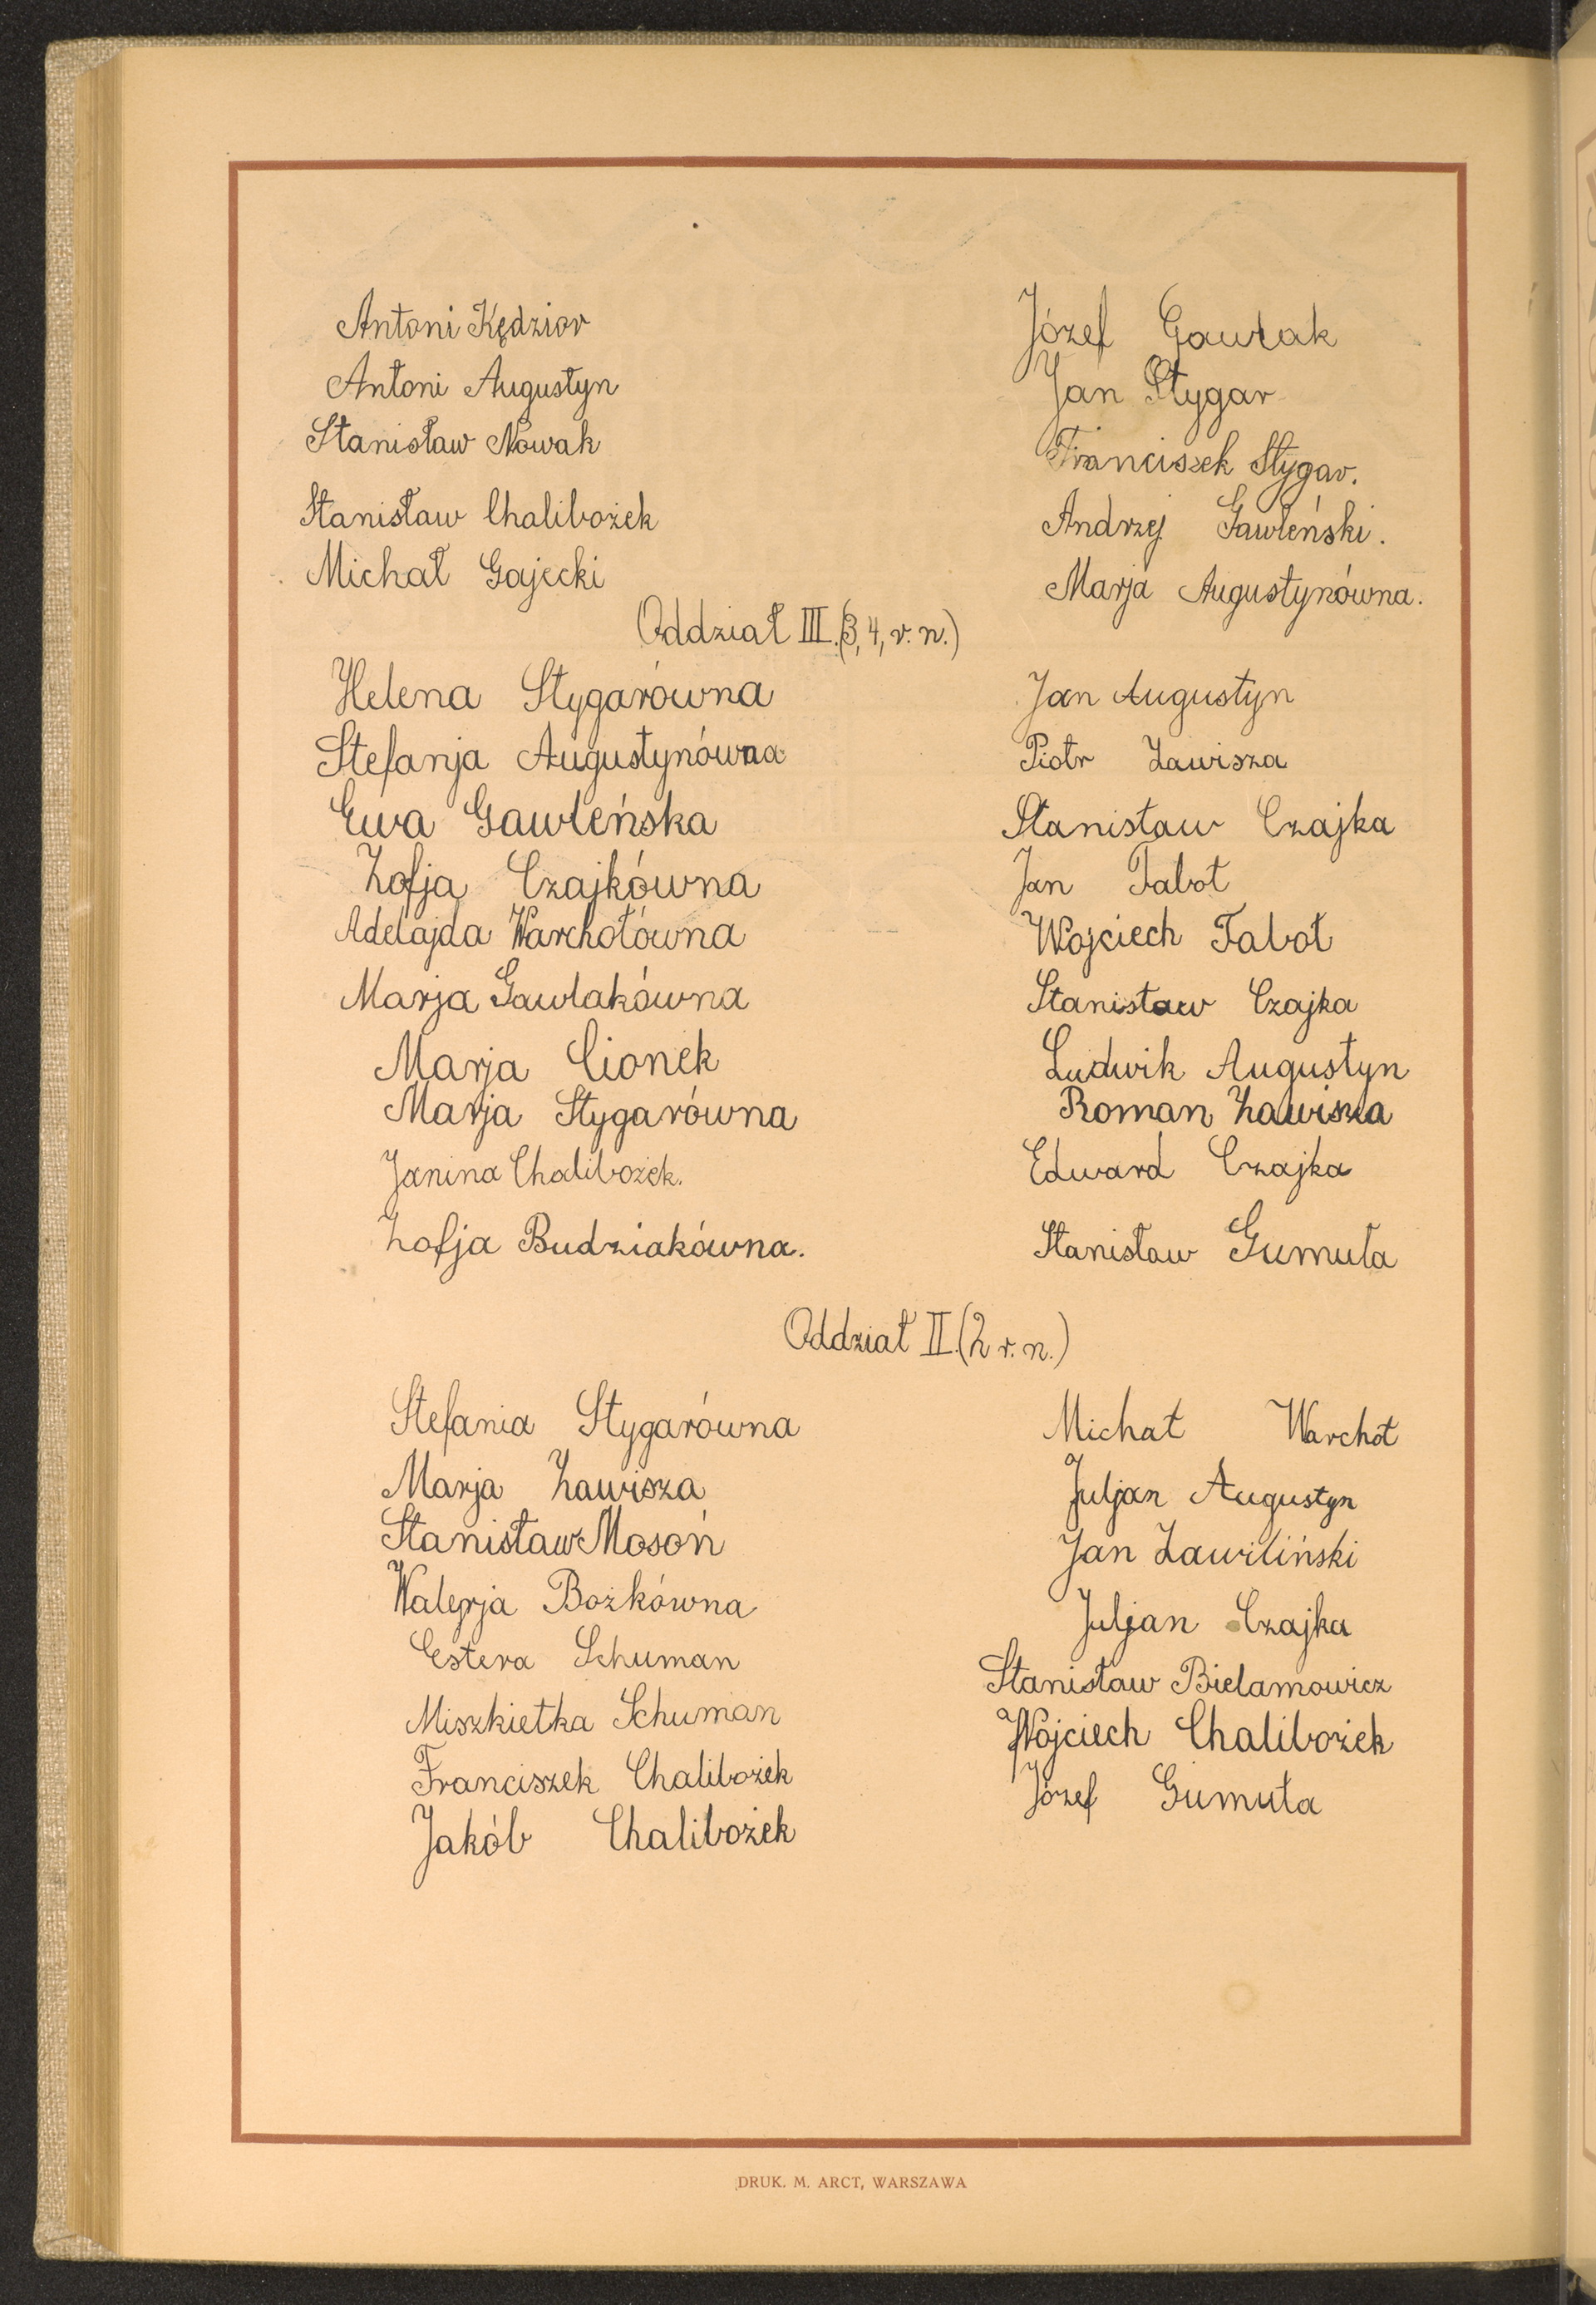 Antoni Kędzior
Antoni Augustyn
Stanisław Nowak
Stanisław Chalibożek
Michał Gajecki
Józef Gawlak
Jan Stygar
Franciszek Stygar.
Andrzej Gawleński.
Marja Augustynówna.
Oddział III.(3, 4, r. n.)
Helena Stygarówna
Stefanja Augustynówna
Ewa Gawleńska
Zofja Czajkówna
Adelajda Warchołówna
Marja Gawlakówna
Marja Cionek
Marja Stygarówna
Janina Chalibożek.
Zofja Budziakówna.
Jan Augustyn
Piotr Zawisza
Stanisław Czajka
Jan Tabot
Wojciech Tabot
Stanisław Czajka
Ludwik Augustyn
Roman Zawisza
Edward Czajka
Stanisław Gumuła
Oddział II.(2 r. n.)
Stefania Stygarówna
Marja Zawisza
Stanisław Mosoń
Walerja Bożkówna
Estera Schuman
Miszkietka Schuman
Franciszek Chalibożek
Jakób Chalibożek
Michał Warchoł
Juljan Augustyn
Jan Zawiliński
Juljan Czajka
Stanisław Bielamowicz
Wojciech Chalibożek
Józef Gumuła
DRUK. M. ARCT, WARSZAWA